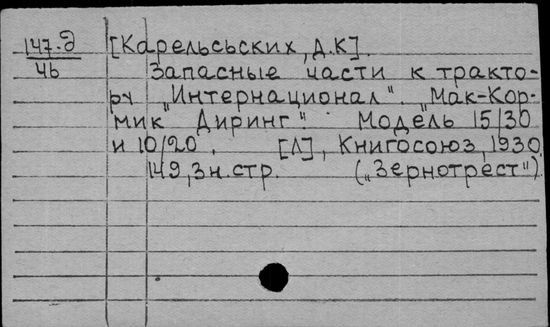 147.д [Карельсьских, Д.К].
46 Запасные части к тракто-
ру „Интернационал". „Мак-Кор-
мик Диринг". Модель 15/30
и 10/20. [Л], Книгосоюз, 1930
149, 3 н. стр. („Зернотрест")